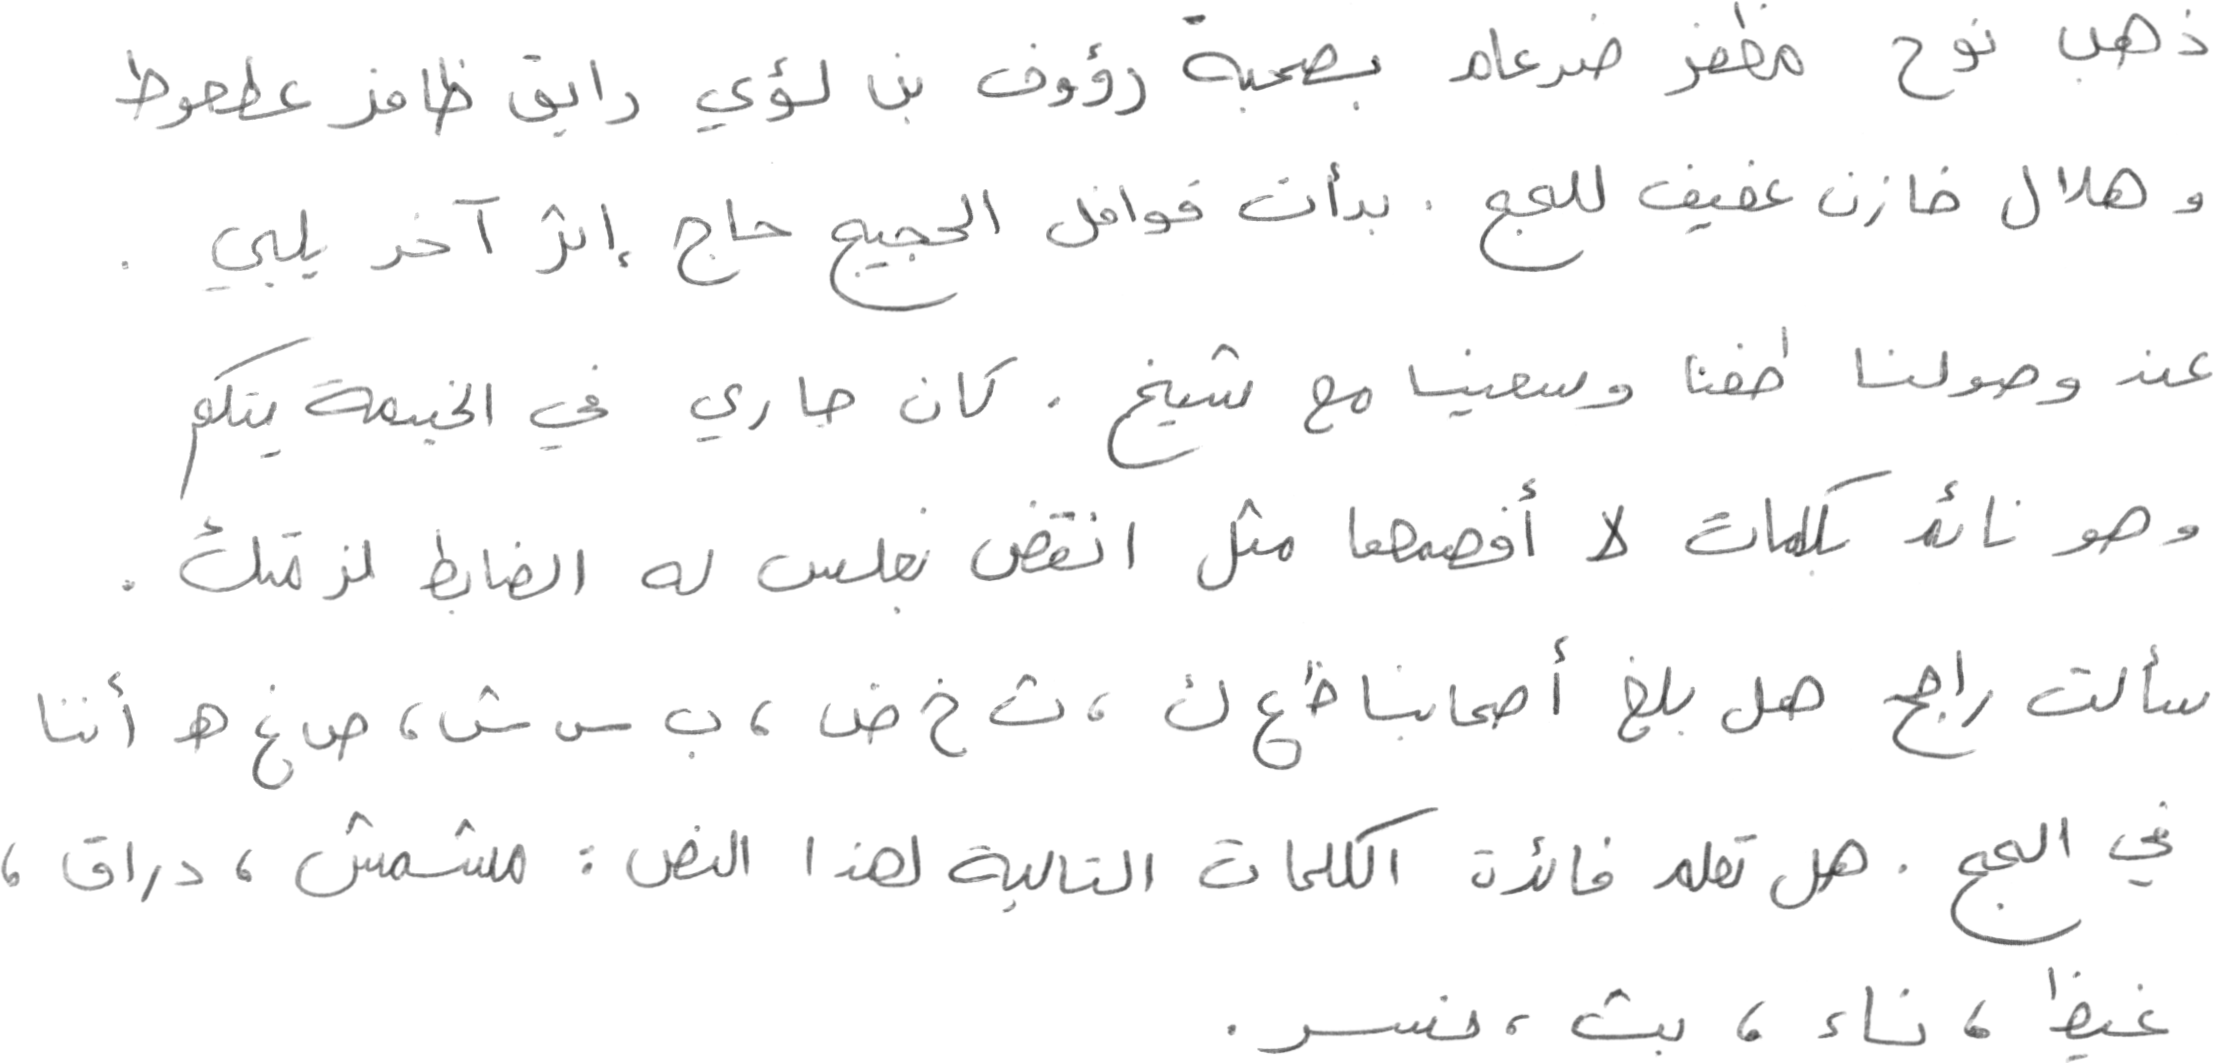 ذهب نوح مظفر ضرغام بصحبة رؤوف بن لؤي رايق ظافر عطعوط
و هلال خازن عفيف للحج . بدأت قوافل الحجيج حاج إثر آخر يلبي .
عند وصولنا طفنا وسعينا مع شيخ . كان جاري في الخيمة يتكلم
وهو نائم بكلمات لا أفهمها مثل انقض نجلس له الضابط لزمتك .
سألت راجح هل بلغ أصحابنا ظ ع ن ، ث خ ض ، ب س ش ، ص غ ه أننا
في الحج . هل تعلم فائدة الكلمات التالية لهذا النص : مشمش ، دراق ،
غيظ ، ناء ، بث ، نسر .